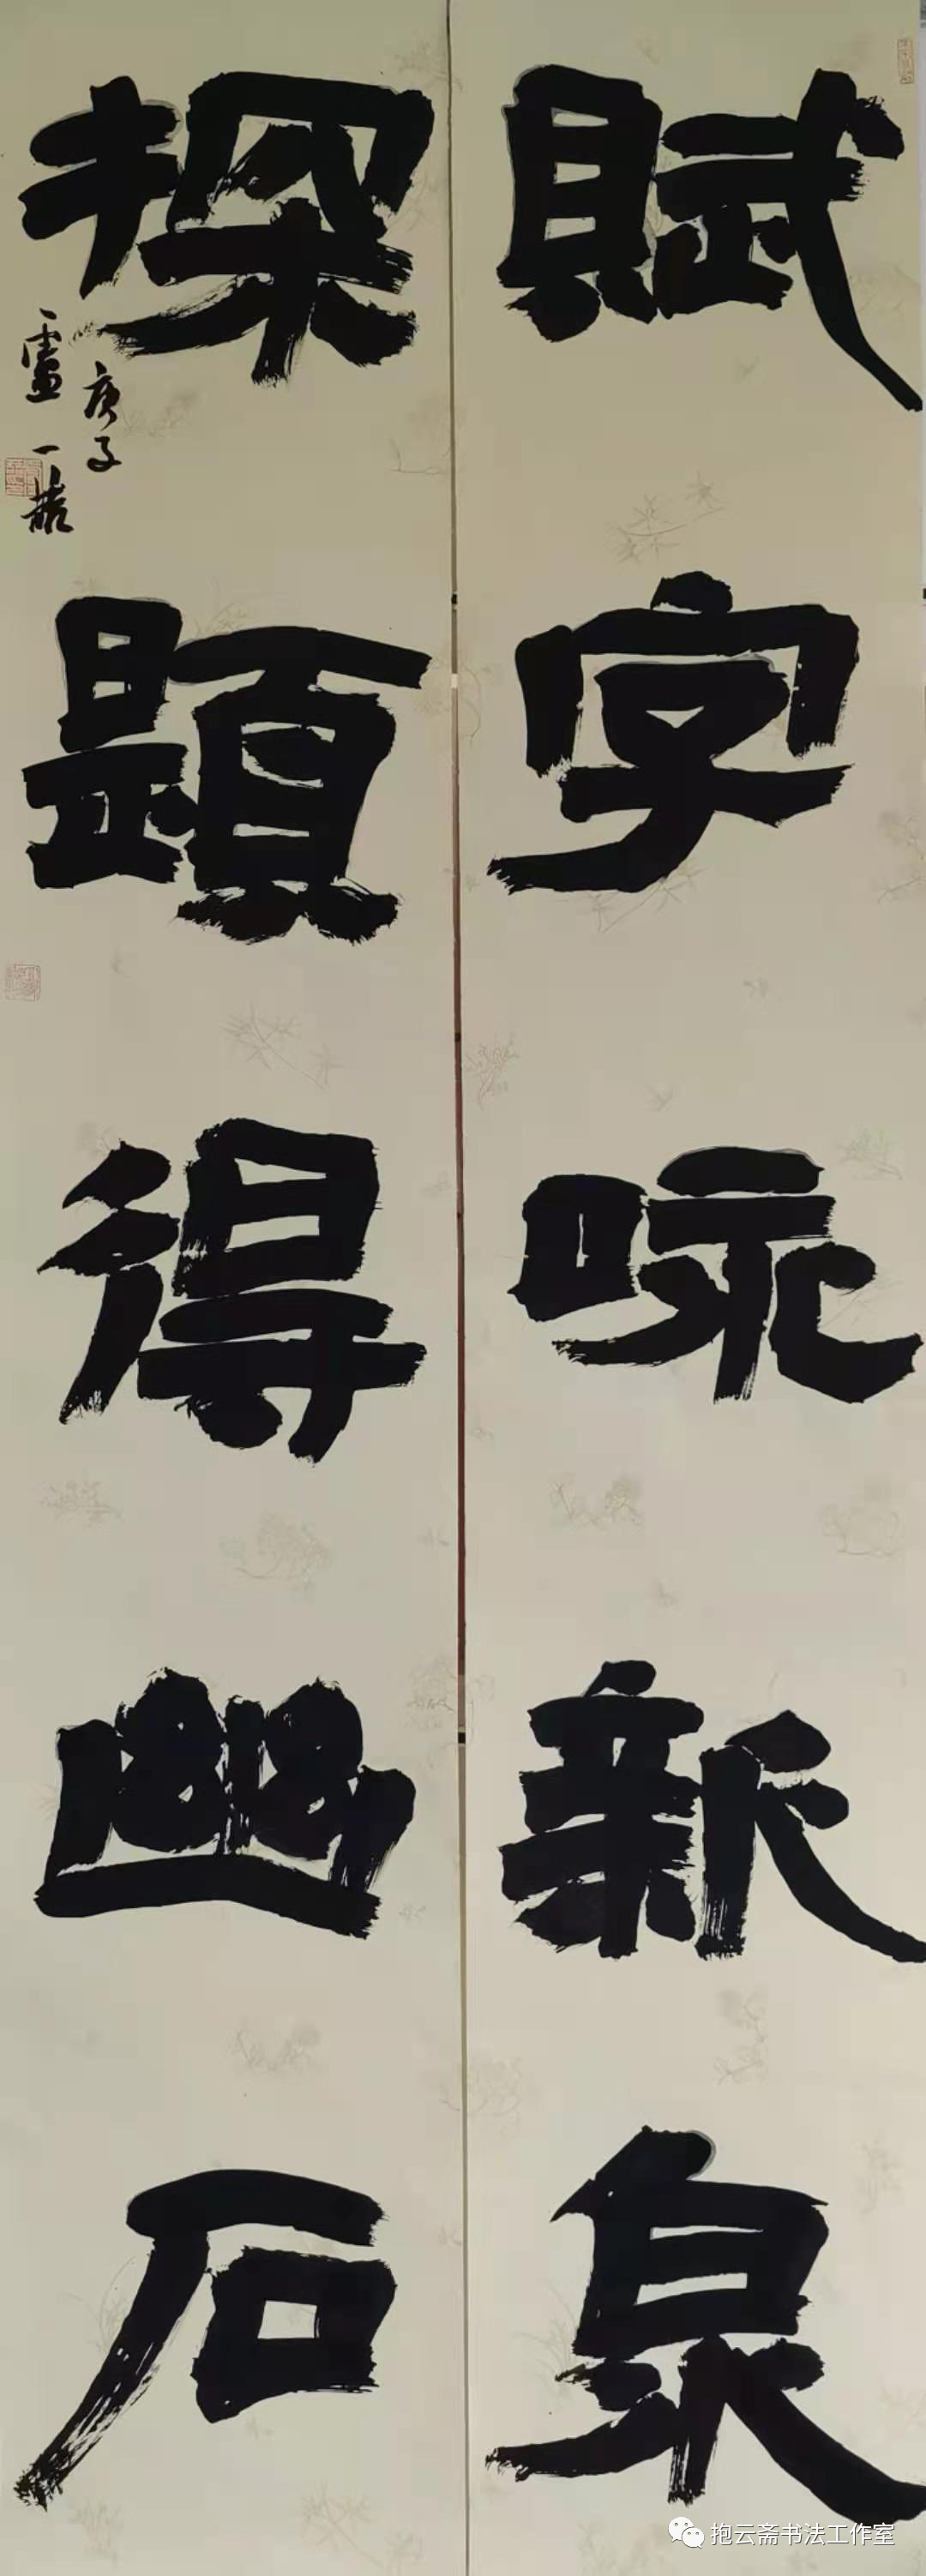 賦字咏新泉
探題得幽石
庚子
盧一
抱云斋书法工作室